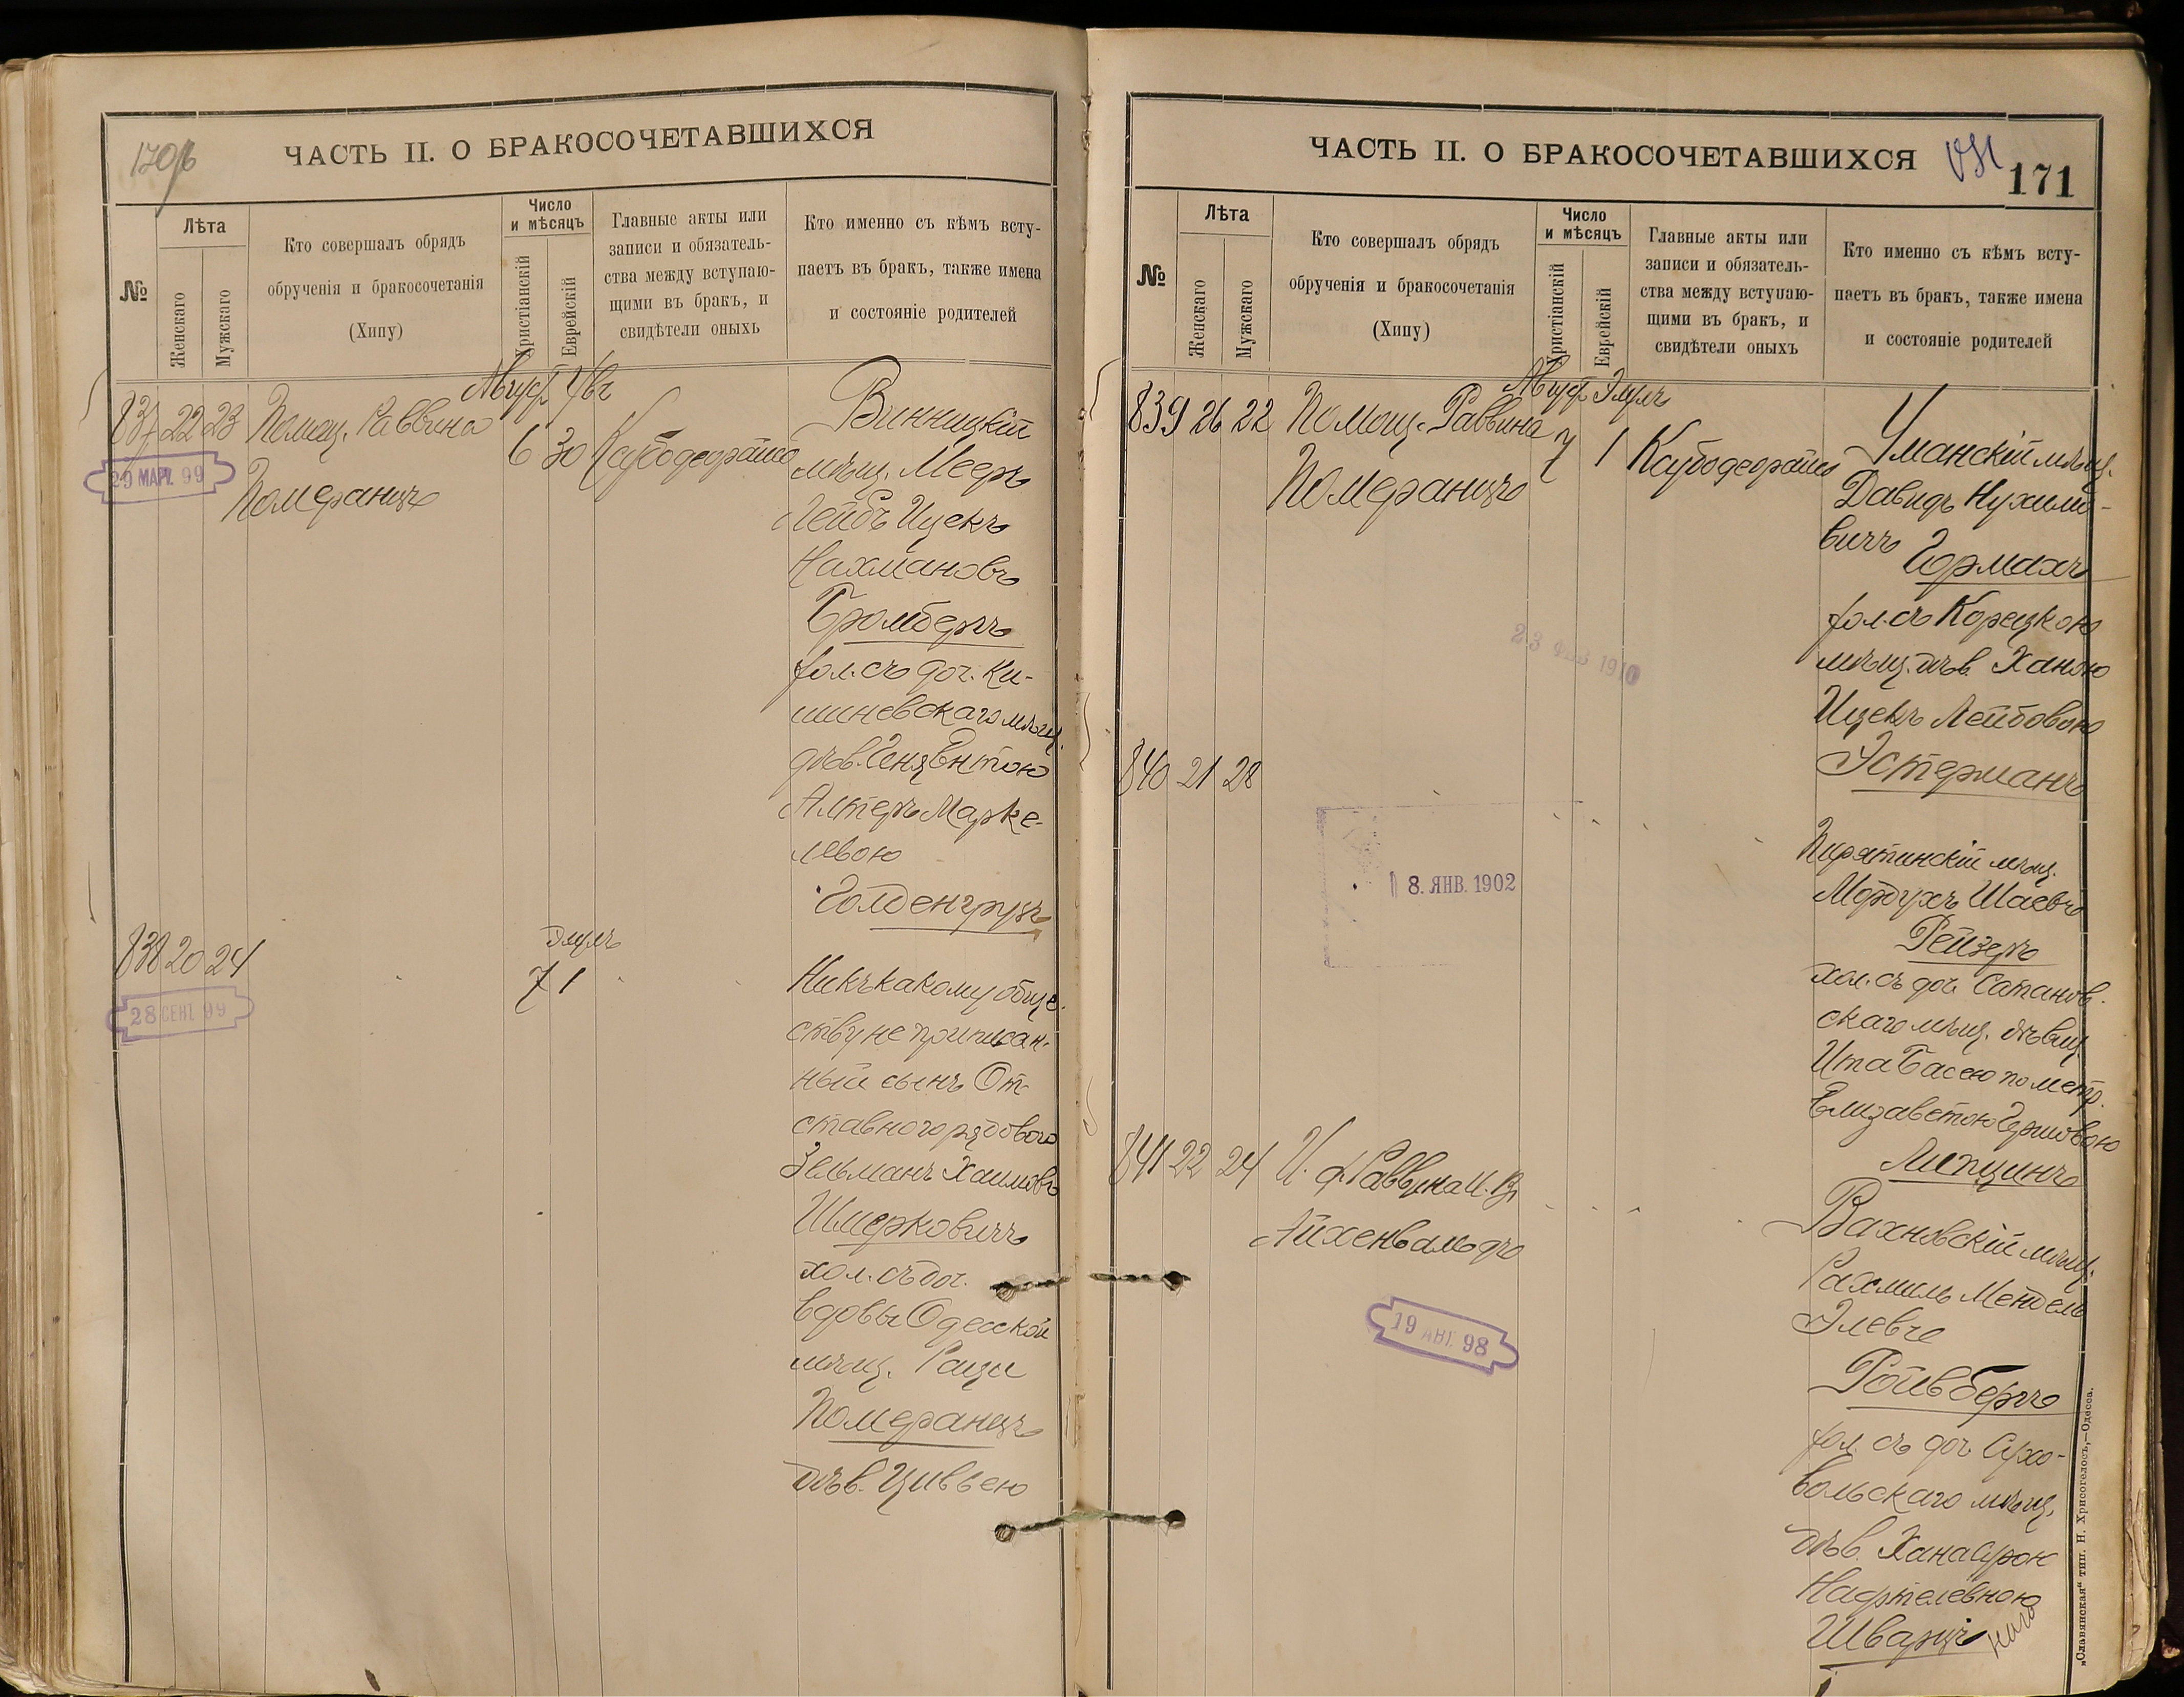 170 об
ЧАСТЬ II. О БРАКОСОЧЕТАВШИХСЯ
№
Лѣта
Женскаго
Мужскаго
Кто совершалъ обрядъ
обрученія и бракосочетанія
(Хипу)
Число
и мѣсяцъ
Христіанскій
Еврейскій
Главные акты или
записи и обязатель-
ства между вступаю-
щими въ бракъ, и
свидѣтели оныхъ
Кто именно съ кѣмъ всту-
паетъ въ бракъ, также имена
и состояніе родителей
Август. Увъ
837 22 23 Помощ. Раввина
Померанцъ
6 30
29 МАР. 99
Винницкій
мѣщ. Мееръ
Лейбъ Ицекъ
Нахмановъ
Бромбергъ
хол. съ доч. Ки-
шиневскаго мѣщ.
дѣв. Геня Ентою
Алтеръ Марке-
левою
Голденгрузъ
838 20 24
Элулъ
7 1
28 СЕНТ. 99
Ни къ какому обще-
ству не приписан-
ный сынъ От-
ставного рядового
Зельманъ Хаимовъ
Шмерковичъ
хол. съ доч.
вдовы Одесской
мѣщ. Рацы
Померанцъ
дѣв. Цивьею
ЧАСТЬ II. О БРАКОСОЧЕТАВШИХСЯ
171
№
Лѣта
Женскаго
Мужскаго
Кто совершалъ обрядъ
обрученія и бракосочетанія
(Хипу)
Число
и мѣсяцъ
Христіанскій
Еврейскій
Главные акты или
записи и обязатель-
ства между вступаю-
щими въ бракъ, и
свидѣтели оныхъ
Кто именно съ кѣмъ всту-
паетъ въ бракъ, также имена
и состояніе родителей
Август. Элулъ
839 26 22 Помощ. Раввина
Померанцъ
7 1
Уманскій мѣщ.
Давидъ Нухимо-
вичъ Гормахъ
хол. съ Корецкою
мѣщ. дѣв. Ханою
Ицекъ Лейбовою
Эстерманъ
23 ФЕВ 1910
840 21 28
8. ЯНВ. 1902
Пирятинскій мѣщ.
Мордухъ Шаевъ
Рейзеръ
хол. съ доч. Сатанов-
скаго мѣщ. дѣвиц.
Ита Басею по метр.
Елизаветою Гершовою
Липцинъ
841 22 24 И. д. Раввина
Айхенвальдъ
19 АВГ. 98
Вахновскій мѣщ.
Рахмиль Мендель
Элевъ
Ройвбергъ
хол. съ доч. Сухо-
вольскаго мѣщ.
дѣв. Хана Сурою
Нафтелевною
Шварцъ
„Славянская“ тип. Н. Хрисогелосъ,—Одесса.